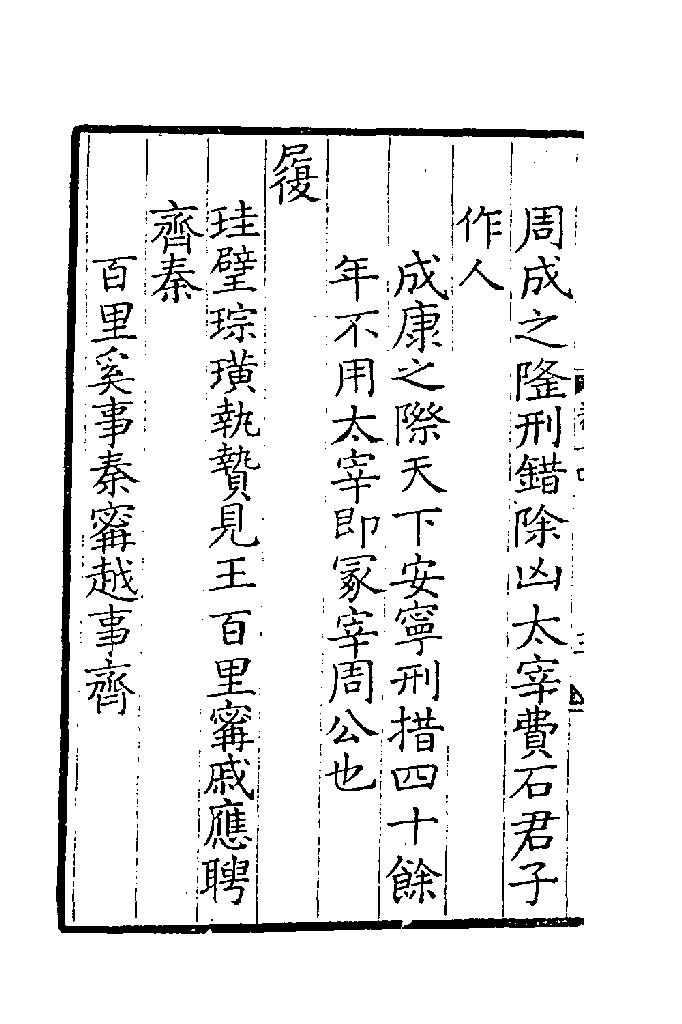 周成之隆刑錯除凶太宰費石君子
作人
成康之際天下安寧刑措四十餘
年不用太宰即冢宰周公也
履
珪璧琮璜執贄見王百里甯戚應聘
齊秦
百里奚事秦甯越事齊